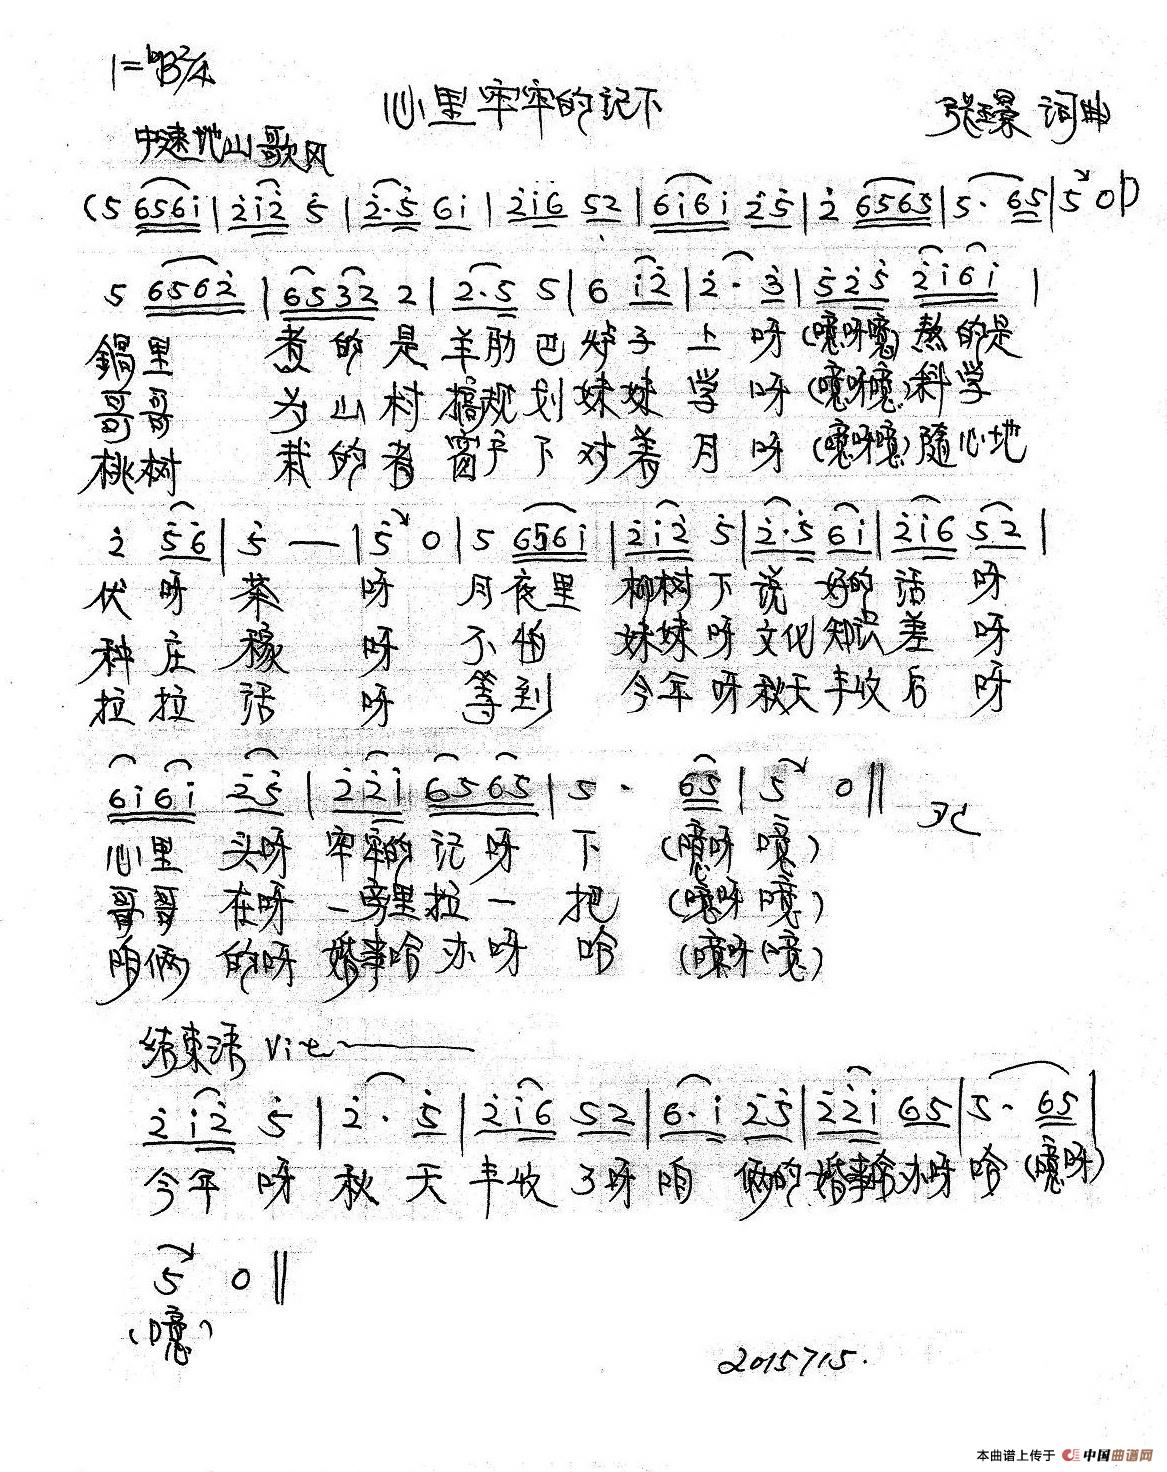 1=♭B 2/4
心里牢牢的记下
张璟 词曲
中速地山歌风
(5 6561|212 5|2·5 61|216 52|6161 25|2 6565|5· 65|5 0|)
5 6562|6532 2|2·5 5|6 12|2· 3|525 2161|
锅里 煮的是羊肋巴炉子上呀(噫呀噫)熬的是
哥哥 为山村搞规划妹妹学呀(噫呀噫)科学
桃树 栽的者窗户下对着月呀(噫呀噫)随心地
2 56|5 —|5 0|5 6561|212 5|2·5 61|216 52|
伏呀茶 呀 月夜里 柳树下说好的话 呀
种庄稼 呀 不怕 妹妹呀文化知识差 呀
拉拉话 呀 等到 今年呀秋天丰收后 呀
6161 25|221 6565|5· 65|5 0‖
心里 头呀 牢牢的记呀下 (噫呀噫)
哥哥 在呀 一旁里拉一把 (噫呀噫)
咱俩 的呀 婚事哈办呀哈 (噫呀噫)
结束语 Vit
212 5|2· 5|216 52|6·1 25|221 65|5· 65|
今年 呀 秋天丰收了呀咱 俩的婚事哈办呀哈(噫呀)
5 0‖
(噫)
2015715.
本曲谱上传于 中国曲谱网